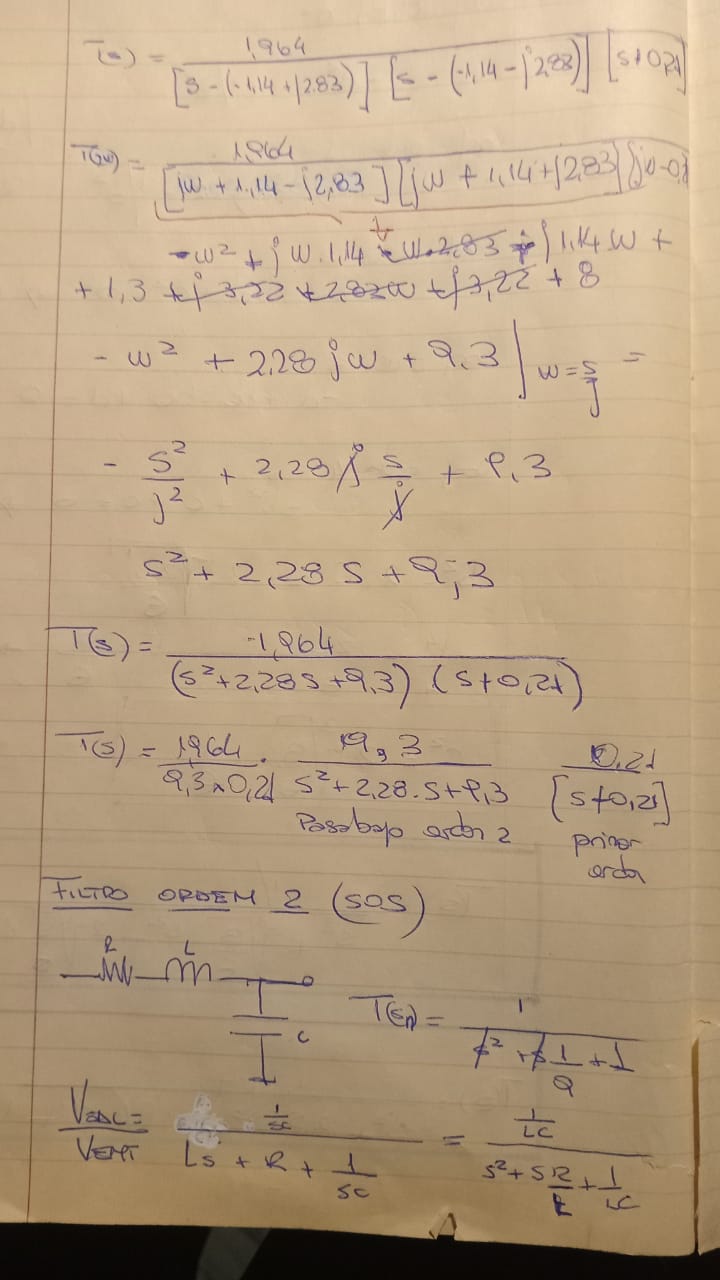 T(s) = 1,964 / [s - (-1,14 + j2.83)] [s - (-1,14 - j2,83)] [s+0,21]
T(jw) = 1,964 / [jw + 1,14 - j2,83] [jw + 1,14 + j2,83] [jw-0,
- w² + j w . 1,14 - w.2,83 + j 1,14 w +
+ 1,3 + j 3,22 + 2,83w + j3,22 + 8
- w² + 2,28 jw + 9.3 | w = s/j =
- s²/j² + 2,28 j s/j + 9,3
s² + 2,28 s + 9,3
T(s) = -1,964 / (s²+2,28s+9,3) (s+0,21)
T(s) = 1,964 / 9,3 x 0,21 . 9,3 / s²+2,28.s+9,3 0,21 / [s+0,21]
Pasabajo orden 2 primer
orden
FILTRO ORDEM 2 (SOS)
R L
C T(s) = 1 / s² + s 1/Q + 1
VSAL / VENT = 1/sC / Ls + R + 1/sC = 1/LC / s² + s R/L + 1/LC